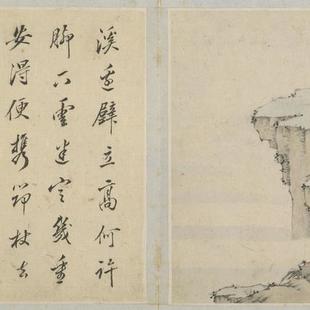 溪邊壁立高何許
脚下雲迷定幾重
安得便攜筇杖去